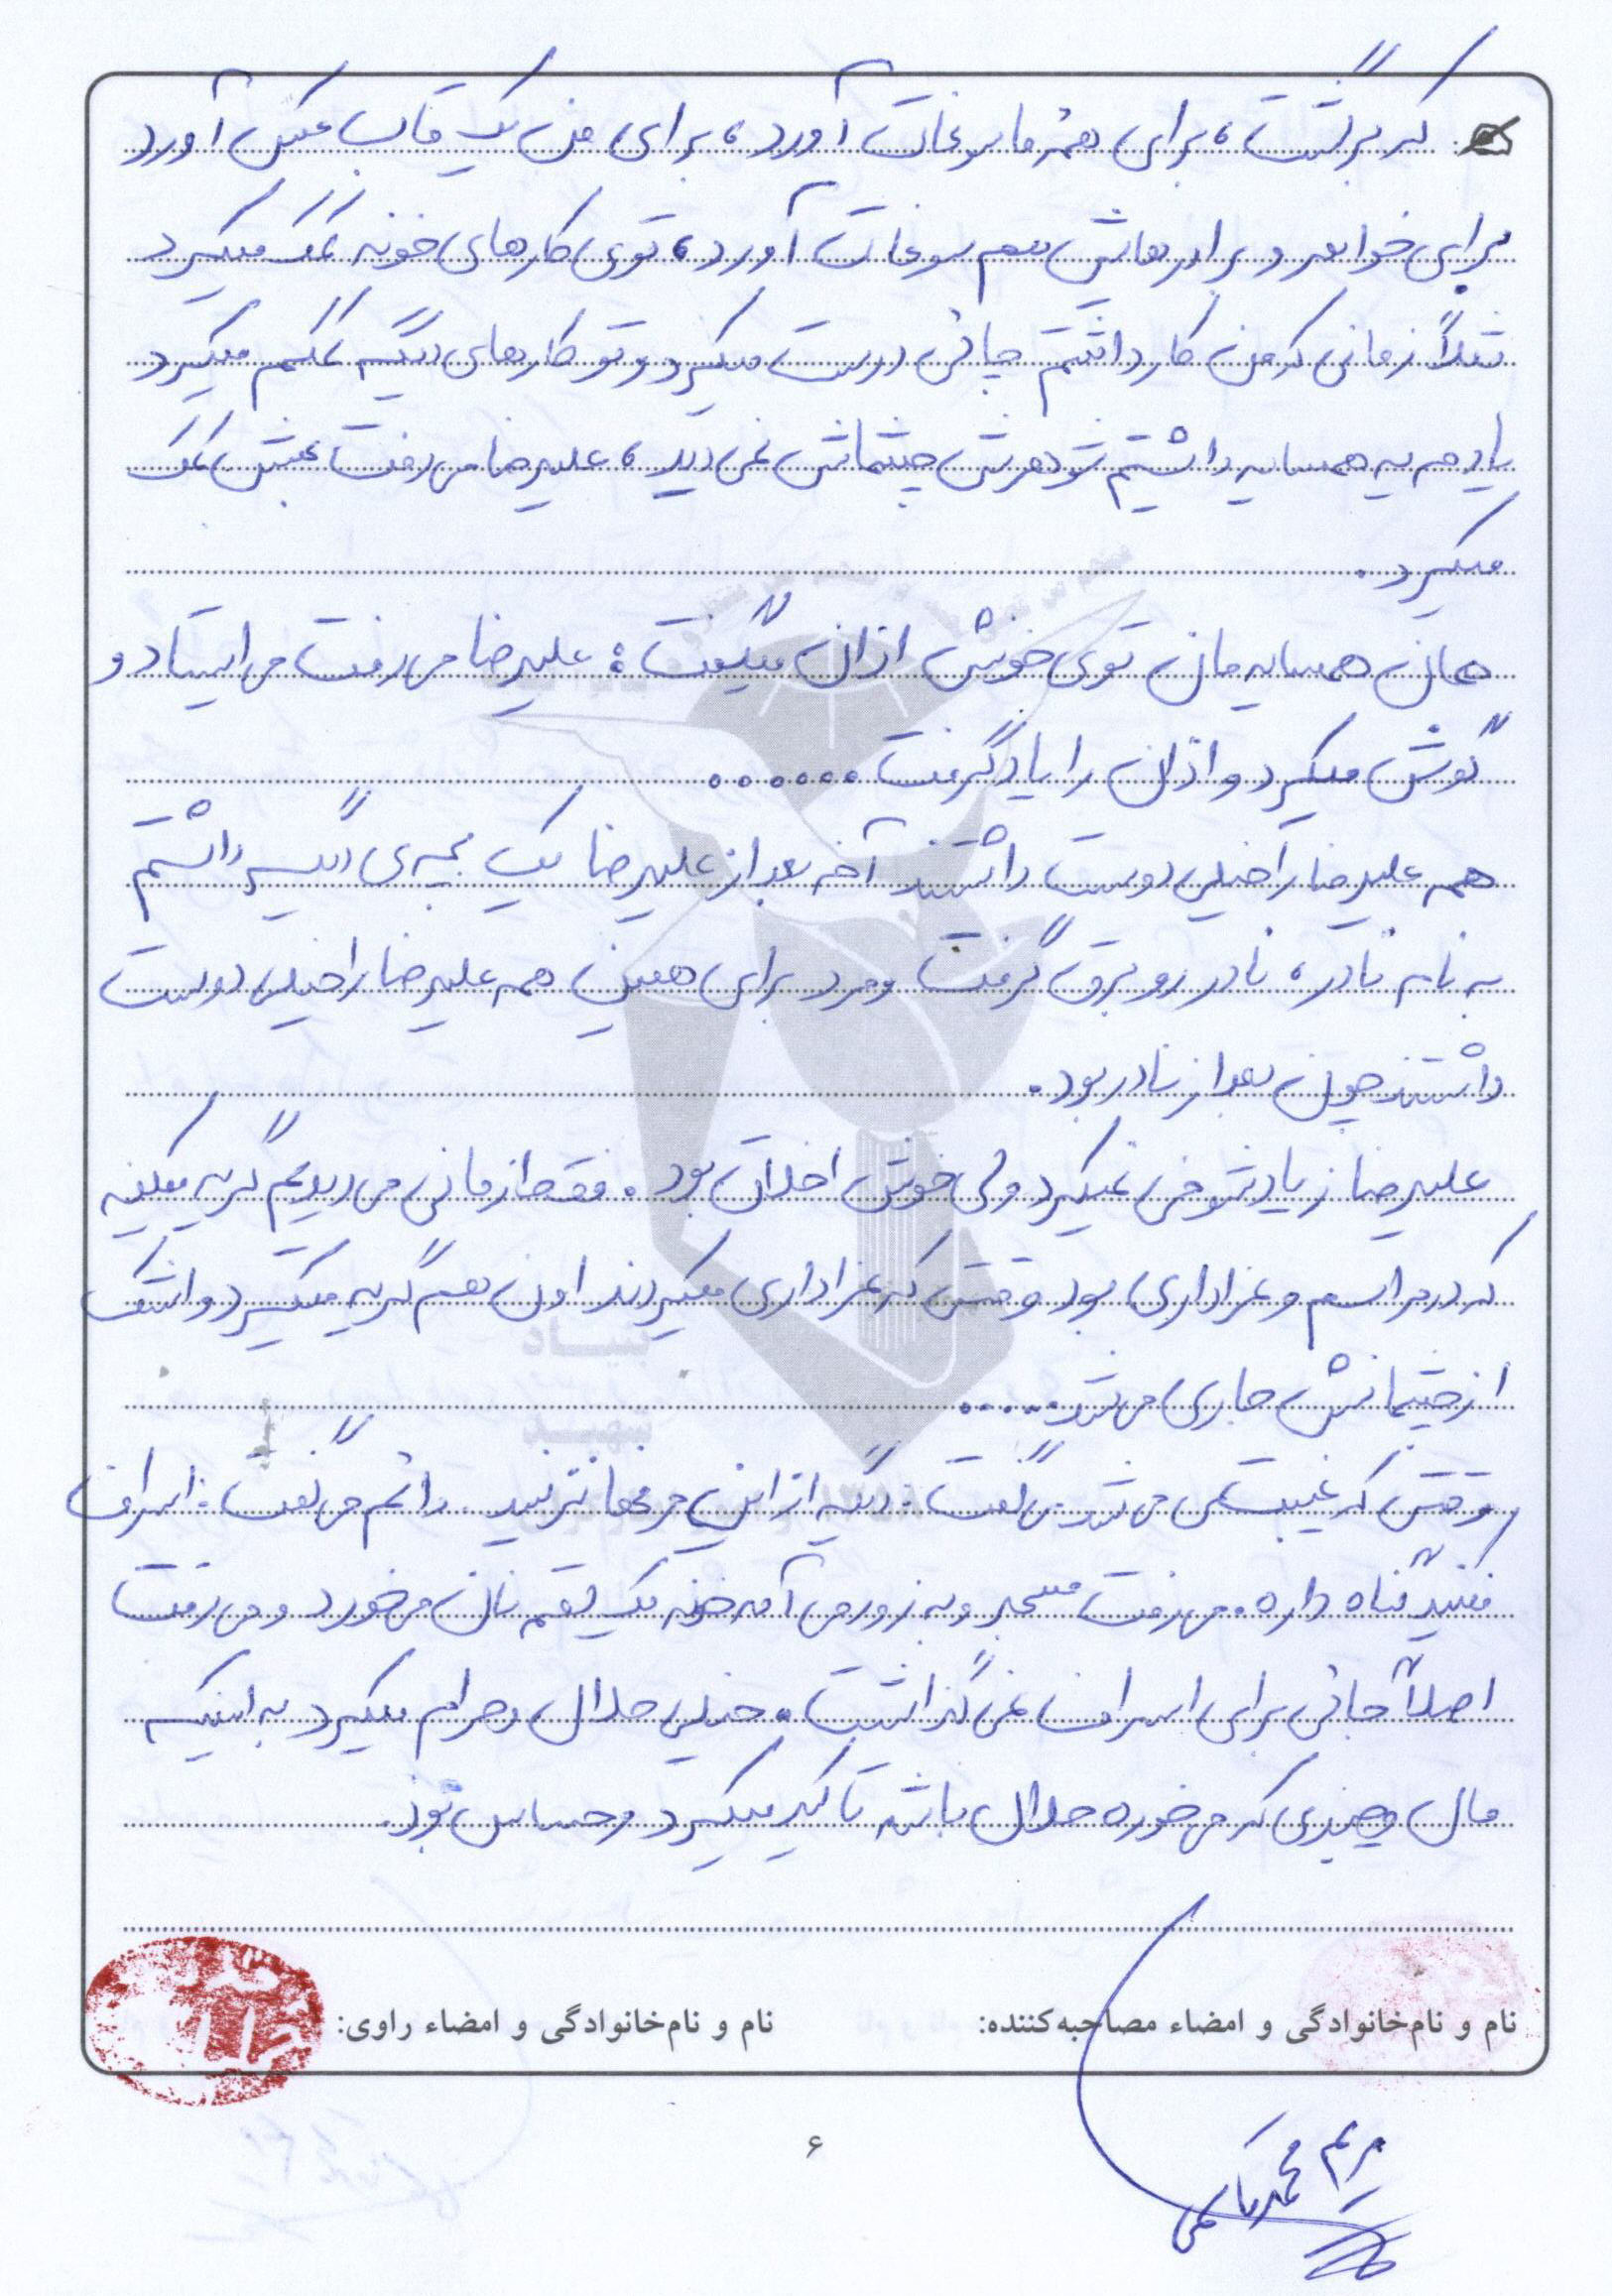 که برگشت، برای همه ما سوغات آورد، برای من یک قاب عکس آورد
برای خواهر و برادرهایش هم سوغات آورد، توی کارهای خونه کمک میکرد
مثلاً زمانی که من کار داشتم چائی درست میکرد و تو کارهای دیگه کمکم میکرد
یادمه یه همسایه داشتیم شوهرش چشماش نمی دید، علیرضا می رفت بهش کمک
میکرد.
همان همسایه مان توی خونش اذان میگفت: علیرضا می رفت می ایستاد و
گوش میکرد و اذان را یاد گرفت ......
همه علیرضا را خیلی دوست داشتند آخه بعد از علیرضا یک بچه ی دیگه داشتم
به نام نادر، نادر رو برق گرفت و مرد برای همین همه علیرضا را خیلی دوست
داشتند چون بعد از نادر بود.
علیرضا زیاد شوخی نمیکرد ولی خوش اخلاق بود. فقط زمانی می دیدیم گریه میکنه
که در مراسم و عزاداری بود وقتی که عزاداری میکردند اون هم گریه میکرد و اشک
از چشمانش جاری می شد.....
وقتی که غیبت می شد می گفت: دیگه از این حرفها نزنید. دائم می گفت: اسراف
نکنید گناه داره. می رفت مسجد و به زور می آمد خونه یک لقمه نان می خورد و می رفت
اصلاً جائی برای اسراف نمی گذاشت. خیلی حلال و حرام میکرد به اینکه
مال و چیزی که می خوره حلال باشه تاکید میکرد و حساس بود.
نام و نام‌خانوادگی و امضاء مصاحبه‌کننده:
نام و نام‌خانوادگی و امضاء راوی:
۶
مریم